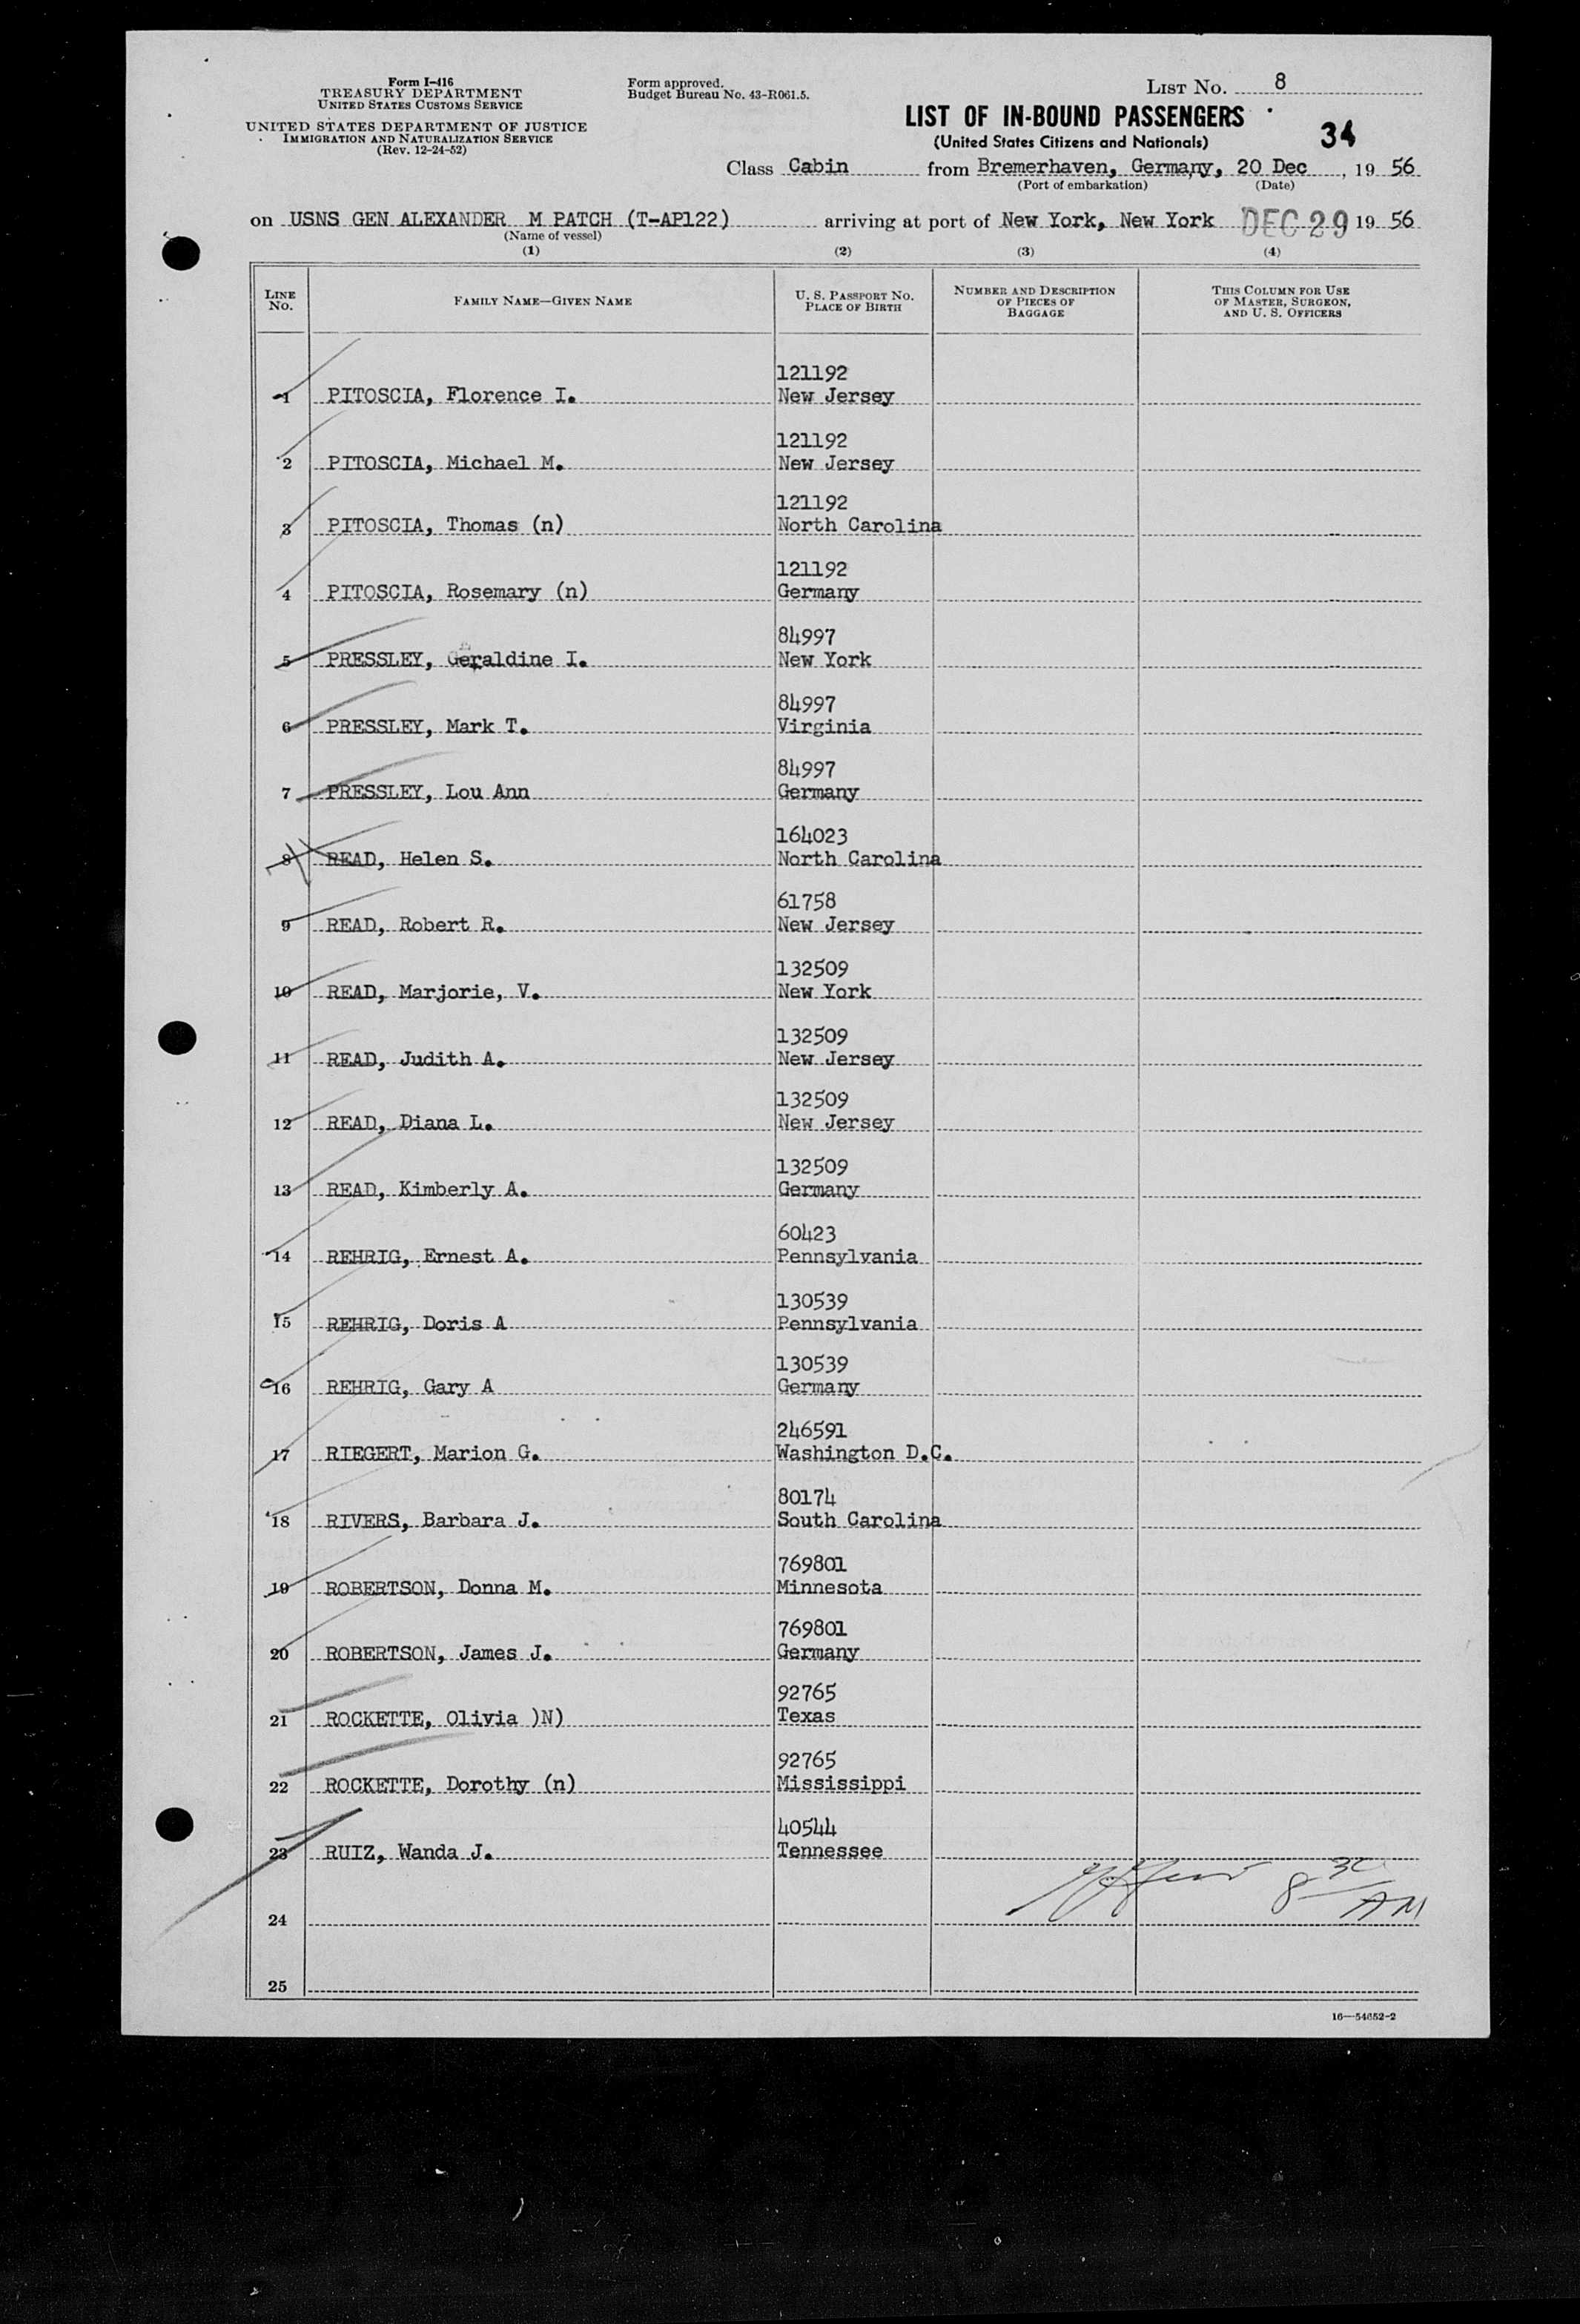 Form I-416
TREASURY DEPARTMENT
UNITED STATES CUSTOMS SERVICE
UNITED STATES DEPARTMENT OF JUSTICE
IMMIGRATION AND NATURALIZATION SERVICE
(Rev. 12-24-52)
Form approved.
Budget Bureau No. 43-R061.5.
LIST NO. 8
LIST OF IN-BOUND PASSENGERS
(United States Citizens and Nationals)
34
Class Cabin from Bremerhaven, Germany, 20 Dec, 19 56
(Port of embarkation) (Date)
on USNS GEN ALEXANDER M PATCH (T-AP122) arriving at port of New York, New York DEC 29 19 56
(Name of vessel)
(1) (2) (3) (4)
LINE NO. FAMILY NAME—GIVEN NAME U. S. PASSPORT NO. PLACE OF BIRTH NUMBER AND DESCRIPTION OF PIECES OF BAGGAGE THIS COLUMN FOR USE OF MASTER, SURGEON, AND U. S. OFFICERS
121192
1 PITOSCIA, Florence I. New Jersey
121192
2 PITOSCIA, Michael M. New Jersey
121192
3 PITOSCIA, Thomas (n) North Carolina
121192
4 PITOSCIA, Rosemary (n) Germany
84997
5 PRESSLEY, Geraldine I. New York
84997
6 PRESSLEY, Mark T. Virginia
84997
7 PRESSLEY, Lou Ann Germany
164023
8 READ, Helen S. North Carolina
61758
9 READ, Robert R. New Jersey
132509
10 READ, Marjorie, V. New York
132509
11 READ, Judith A. New Jersey
132509
12 READ, Diana L. New Jersey
132509
13 READ, Kimberly A. Germany
60423
14 REHRIG, Ernest A. Pennsylvania
130539
15 REHRIG, Doris A Pennsylvania
130539
16 REHRIG, Gary A Germany
246591
17 RIEGERT, Marion G. Washington D.C.
80174
18 RIVERS, Barbara J. South Carolina
769801
19 ROBERTSON, Donna M. Minnesota
769801
20 ROBERTSON, James J. Germany
92765
21 ROCKETTE, Olivia )N) Texas
92765
22 ROCKETTE, Dorothy (n) Mississippi
40544
23 RUIZ, Wanda J. Tennessee
8 30 AM
24
25
16—54652-2